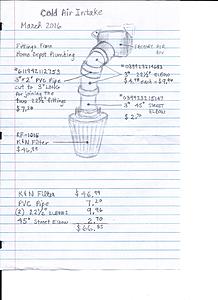 Cold Air Intake
March 2016
Fittings From
Home Depot Plumbing
FACTORY AIR
BOX
*611942112753
3" x 2" PVC Pipe
cut to 3" LONG
for joining the
two 22½° fittings
$7.20
3" 22½° ELBOW
$4.98 each = $9.96
3" 45° STREET
ELBOW
$2.70
RF-1015
K&N Filter
$46.99
K&N Filter $46.99
PVC Pipe 7.20
(2) 22½° ELBOWS 9.96
45° Street Elbow 2.70
$66.85